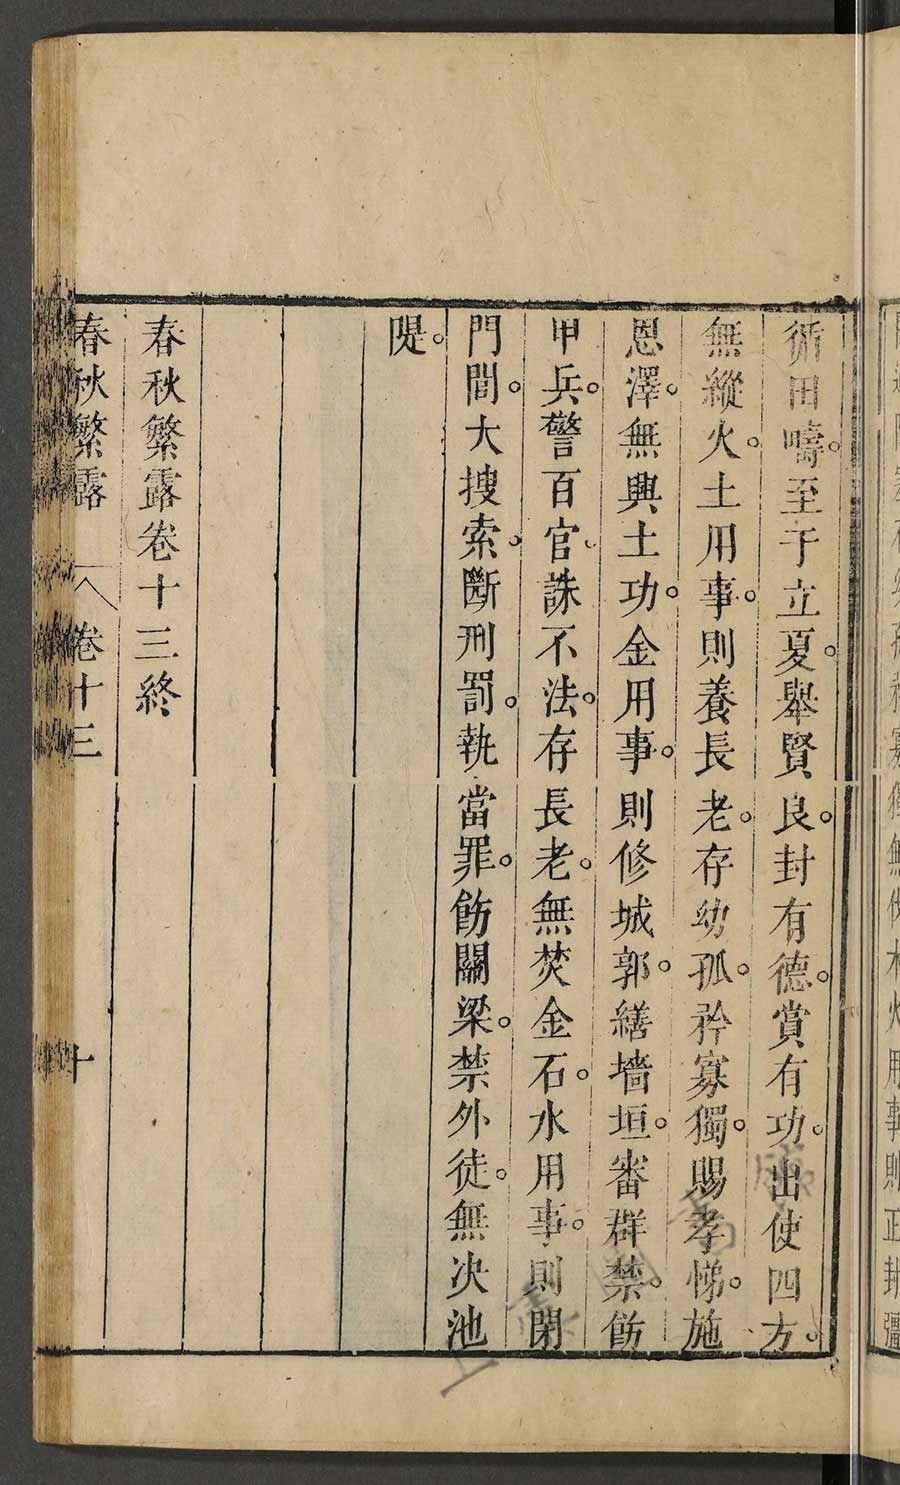 循田疇。至于立夏。舉賢良。封有德。賞有功。出使四方。
無縱火。土用事。則養長老。存幼孤。矜寡獨。賜孝悌。施
恩澤。無興土功。金用事。則修城郭。繕墻垣。審群禁。飭
甲兵。警百官。誅不法。存長老。無焚金石。水用事。則閉
門閭。大搜索。斷刑罰。執當罪。飭關梁。禁外徒。無决池
隄。
春秋繁露卷十三終
春秋繁露 卷十三 十
無伐木火用事則正封疆